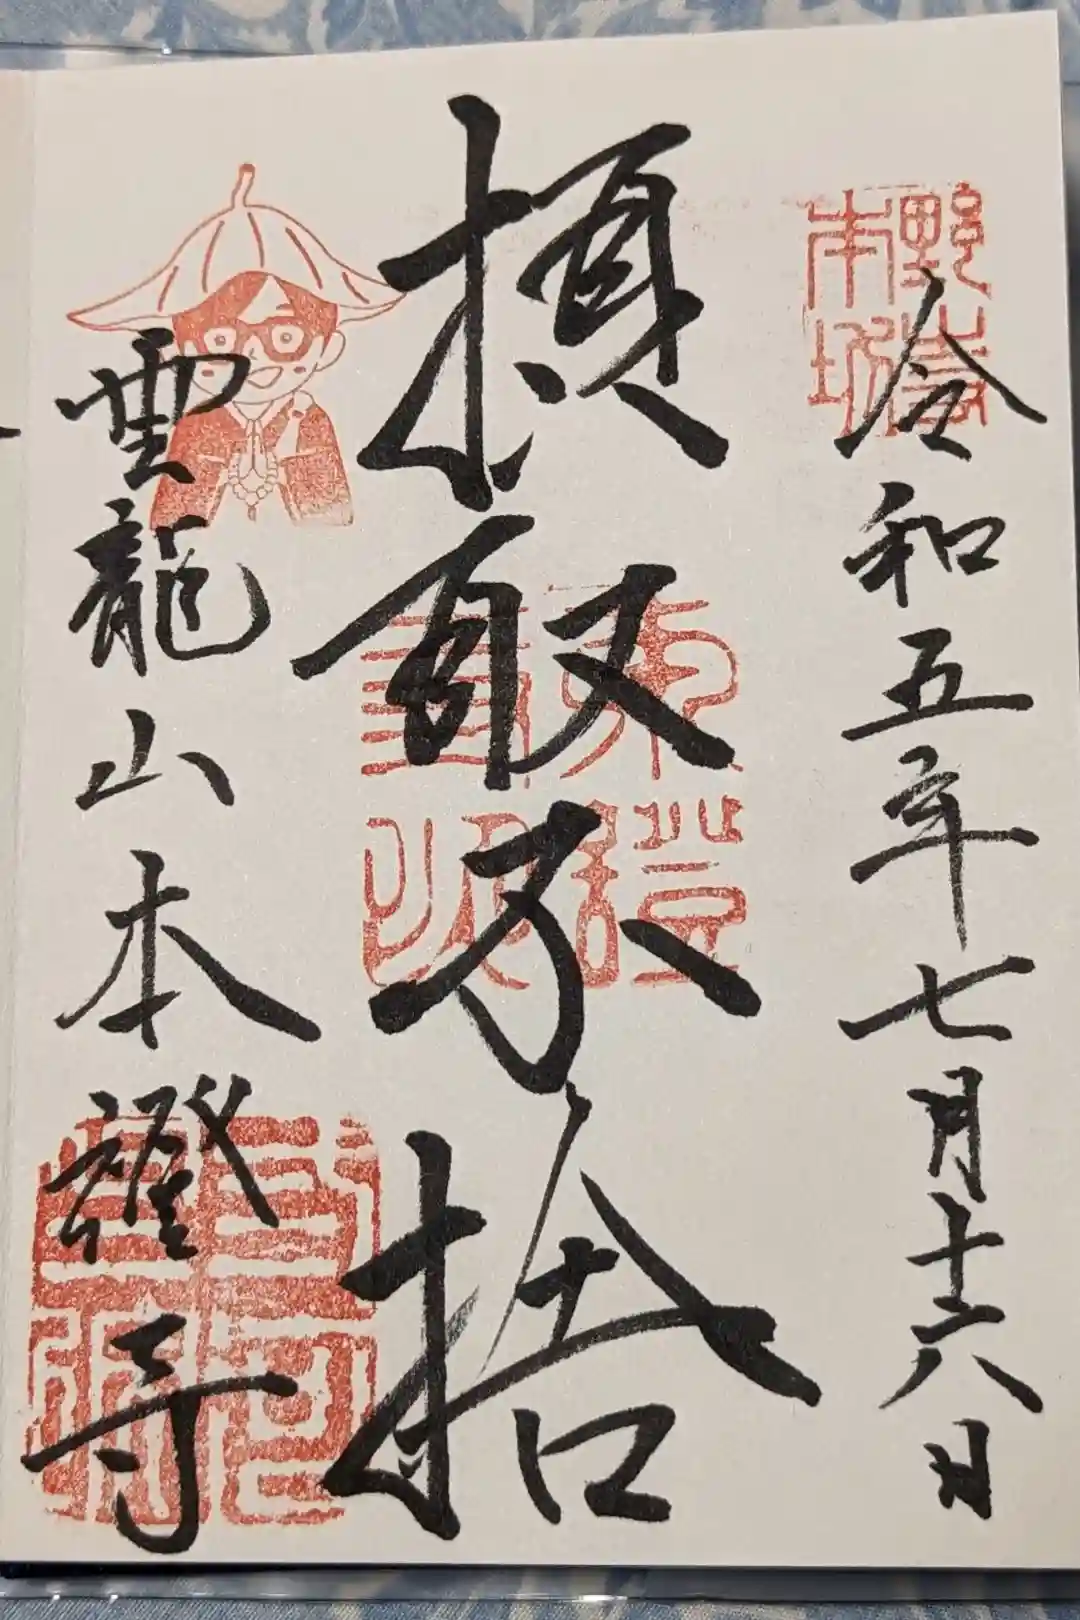 野寺本坊
令和五年七月十六日
摂取不捨
雲龍山本證寺